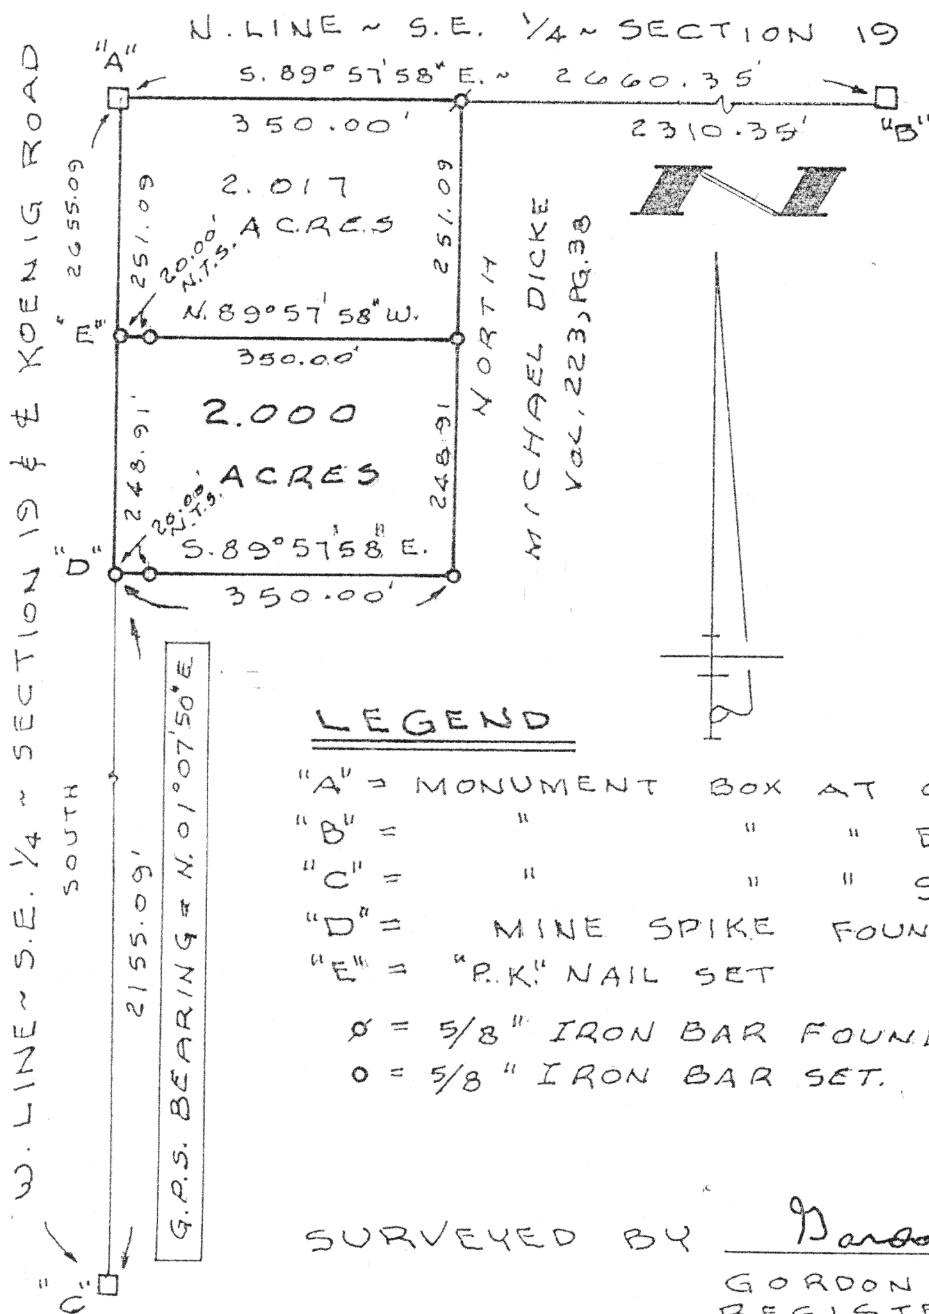 N. LINE ~ S.E. 1/4 ~ SECTION 19
"A"
S. 89° 57' 58" E. ~ 2660.35'
350.00'
2310.35'
"B"
W. LINE ~ S.E. 1/4 ~ SECTION 19 & ℄ KOENIG ROAD
2655.09
251.09
2.017
ACRES
251.09
20.00'
N.T.S.
"E"
N. 89° 57' 58" W.
350.00'
NORTH
MICHAEL DICKE
VOL. 223, PG. 38
248.91'
2.000
ACRES
248.91
20.00'
N.T.S.
"D"
S. 89° 57' 58" E.
350.00'
SOUTH
2155.09'
G.P.S. BEARING = N. 01° 07' 50" E
"C"
LEGEND
"A" = MONUMENT BOX AT
"B" = " " "
"C" = " " "
"D" = MINE SPIKE FOUN
"E" = "P.K." NAIL SET
ø = 5/8" IRON BAR FOUN
o = 5/8" IRON BAR SET.
SURVEYED BY
GORDON
REGISTE